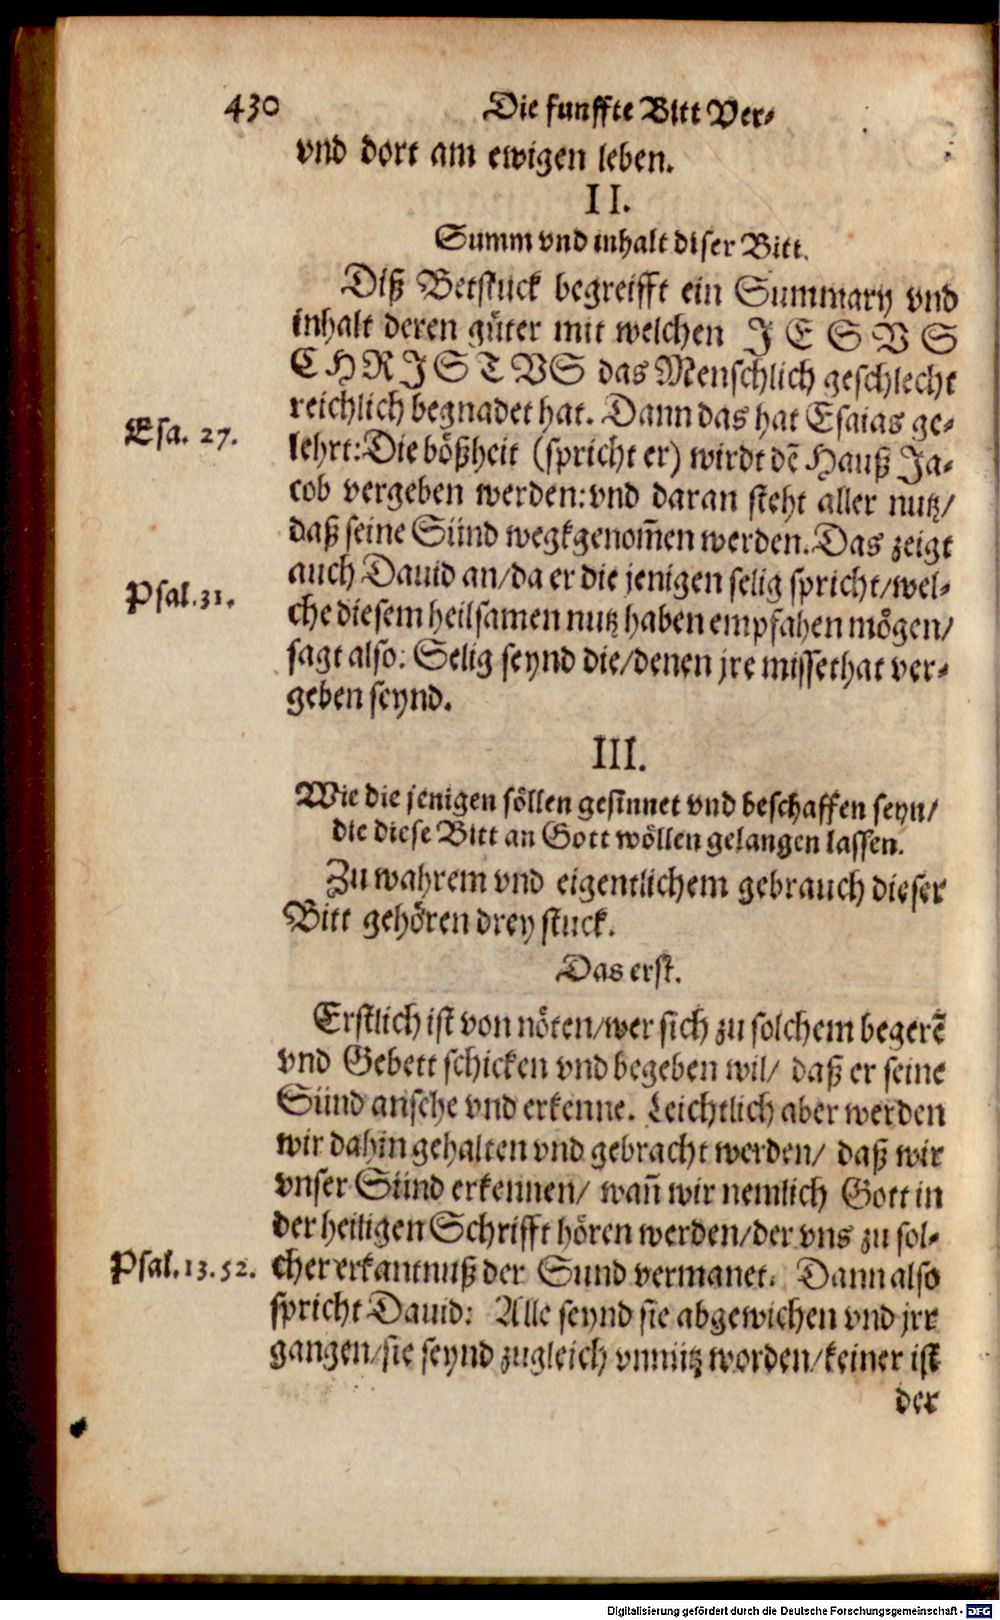 430 Die funffte Bitt Ver-
vnd dort am ewigen leben.
II.
Summ vnd inhalt diser Bitt.
Diß Betstuck begreifft ein Summary vnd
inhalt deren güter mit welchen JESVS
CHRISTVS das Menschlich geschlecht
reichlich begnadet hat. Dann das hat Esaias ge-
Esa. 27.
lehrt: Die bößheit (spricht er) wirdt dē Hauß Ja-
cob vergeben werden: vnd daran steht aller nutz/
daß seine Sünd wegkgenom̄en werden. Das zeigt
auch Dauid an/da er die jenigen selig spricht/wel-
Psal. 31.
che diesem heilsamen nutz haben empfahen mögen/
sagt also: Selig seynd die/denen jre missethat ver-
geben seynd.
III.
Wie die jenigen söllen gesinnet vnd beschaffen seyn/
die diese Bitt an Gott wöllen gelangen lassen.
Zu wahrem vnd eigentlichem gebrauch dieser
Bitt gehören drey stuck.
Das erst.
Erstlich ist von nöten/wer sich zu solchem begerē
vnd Gebett schicken vnd begeben wil/ daß er seine
Sünd ansehe vnd erkenne. Leichtlich aber werden
wir dahin gehalten vnd gebracht werden/ daß wir
vnser Sünd erkennen/ wañ wir nemlich Gott in
der heiligen Schrifft hören werden/der vns zu sol-
Psal. 13. 52.
cher erkantnuß der Sund vermanet. Dann also
spricht Dauid: Alle seynd sie abgewichen vnd jrr
gangen/sie seynd zugleich vnnütz worden/keiner ist
der
Digitalisierung gefördert durch die Deutsche Forschungsgemeinschaft - DFG